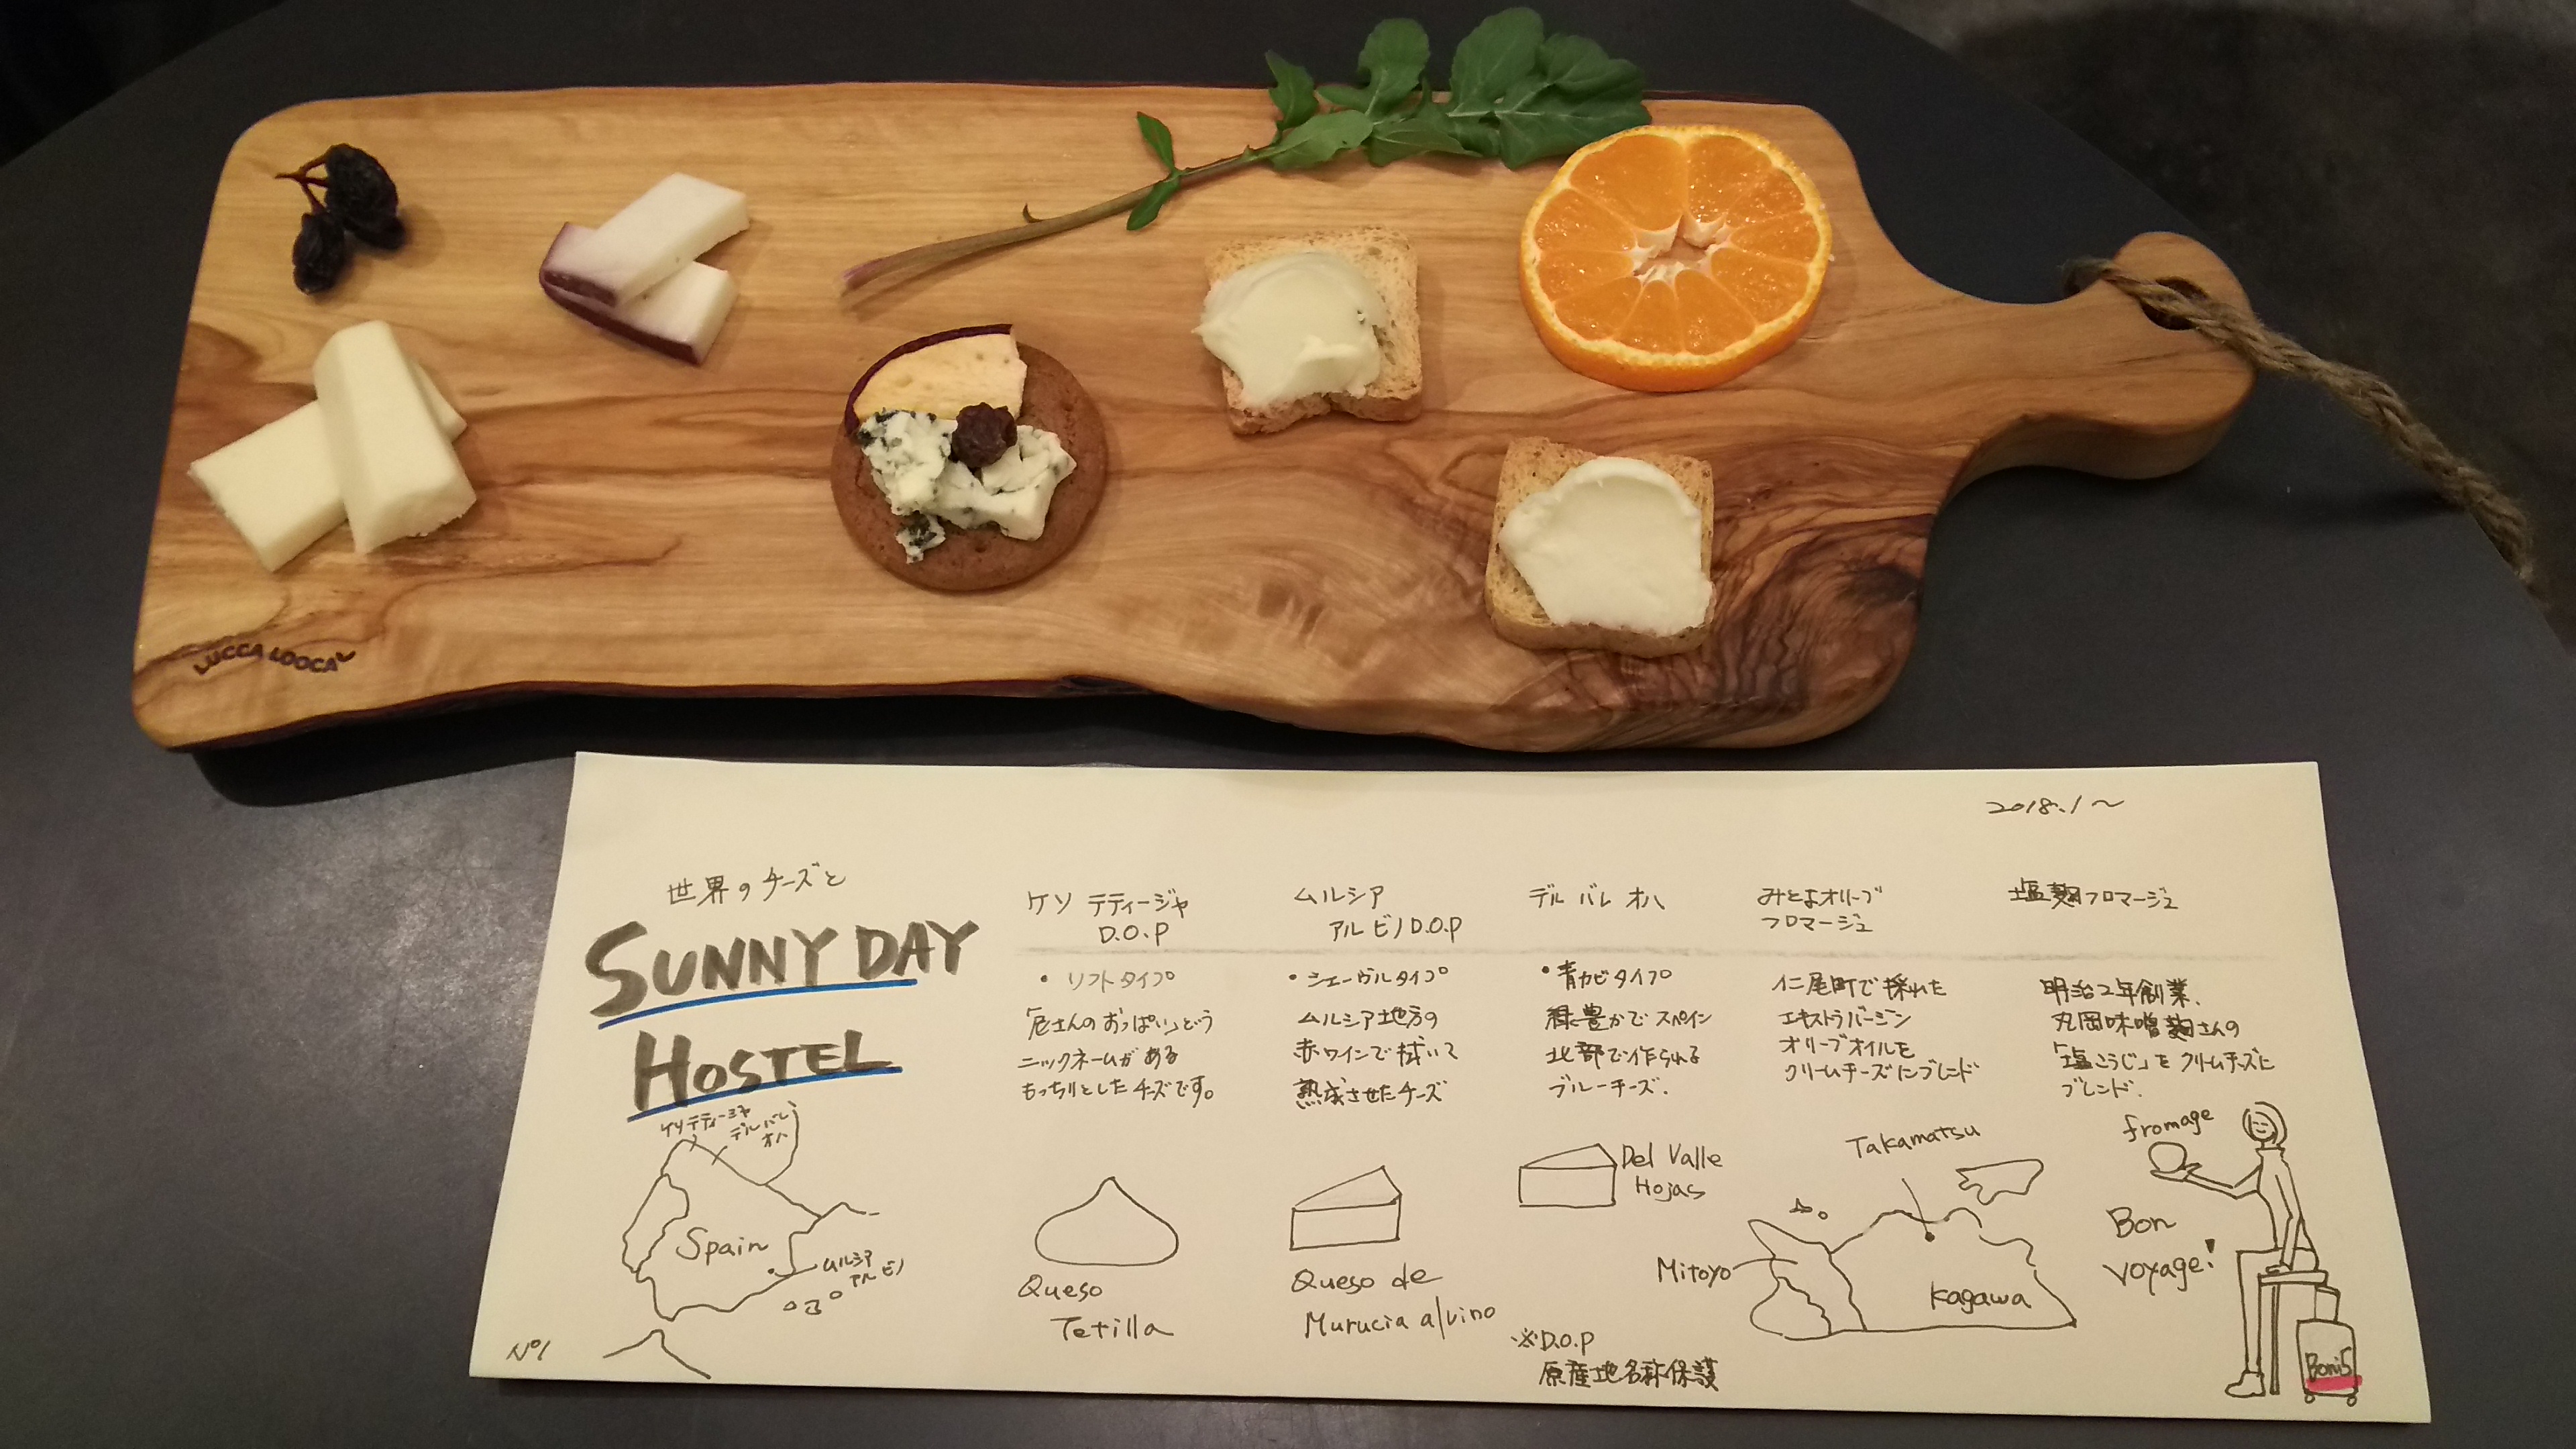 LUCCA LOOCA
2018.1〜
世界のチーズと
SUNNY DAY
HOSTEL
ケソ テティージャ
D.O.P
・ソフトタイプ
「尼さんのおっぱい」という
ニックネームがある
もっちりとしたチーズです。
Queso
Tetilla
ムルシア
アル ビノ D.O.P
・シェーヴルタイプ
ムルシア地方の
赤ワインで拭いて
熟成させたチーズ
Queso de
Murucia al vino
デル バレ オハ
・青カビタイプ
緑豊かでスペイン
北部で作られる
ブルーチーズ.
Del Valle
Hojas
※D.O.P
原産地名称保護
みとよオリーブ
フロマージュ
仁尾町で採れた
エキストラバージン
オリーブオイルを
クリームチーズにブレンド
塩麹フロマージュ
明治2年創業、
丸岡味噌麹さんの
「塩こうじ」をクリームチーズに
ブレンド.
ケソテティージャ
デルバレ
オハ
Spain
ムルシア
アル ビノ
Nº1
Takamatsu
Mitoyo
Kagawa
fromage
Bon
voyage!
BoniS